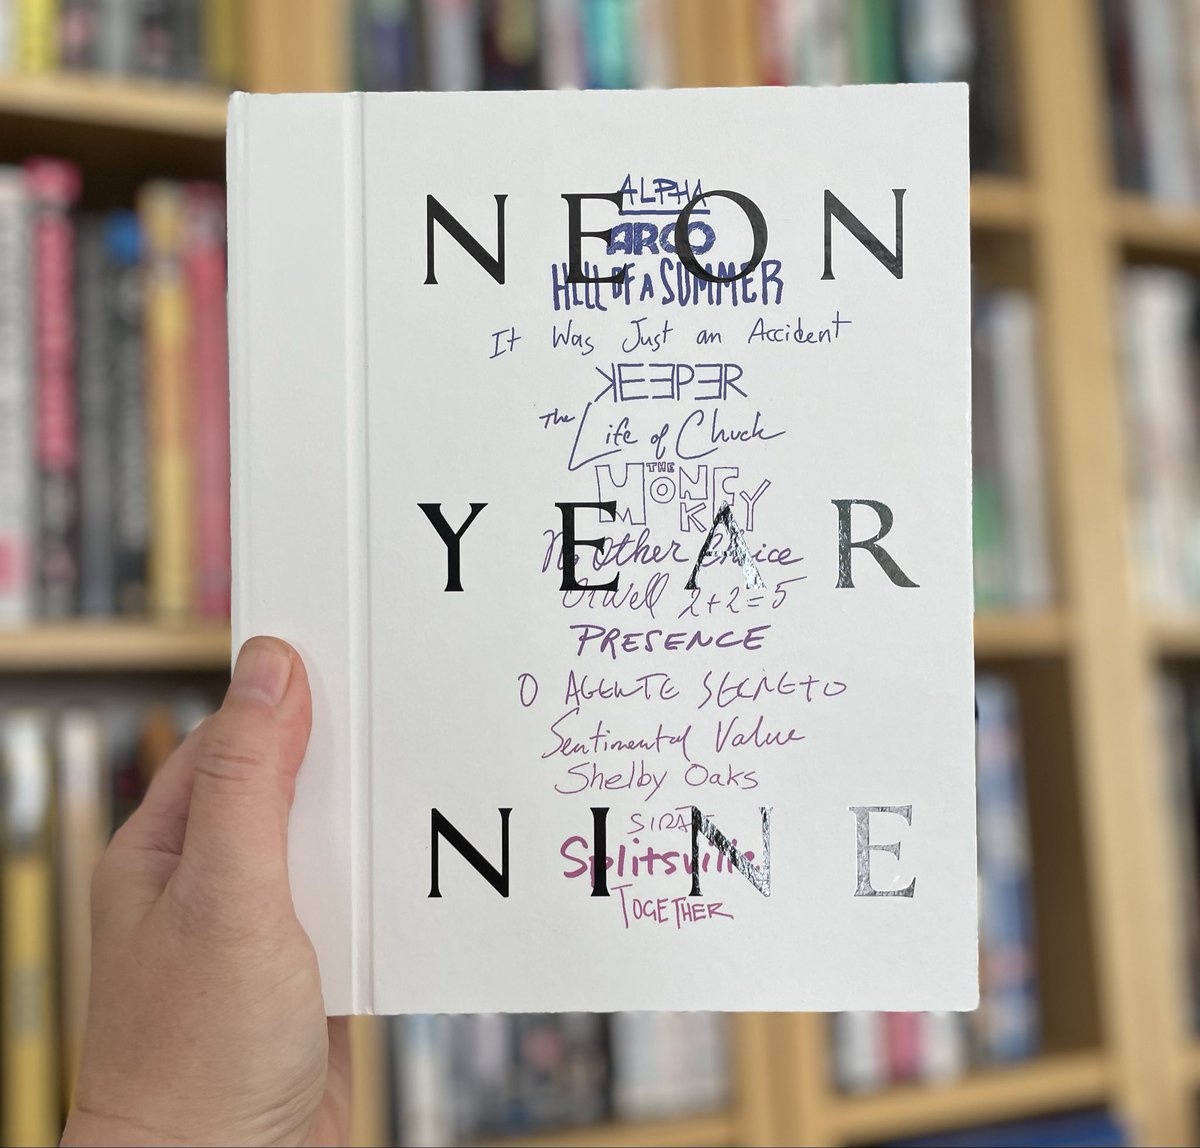 NEON
ALPHA
ARCO
HELL OF A SUMMER
It Was Just an Accident
KEEPER
The Life of Chuck
THE MONKEY
YEAR
No Other Choice
Orwell 2+2=5
PRESENCE
O AGENTE SECRETO
Sentimental Value
Shelby Oaks
NINE
SIRAT
Splitsville
TOGETHER